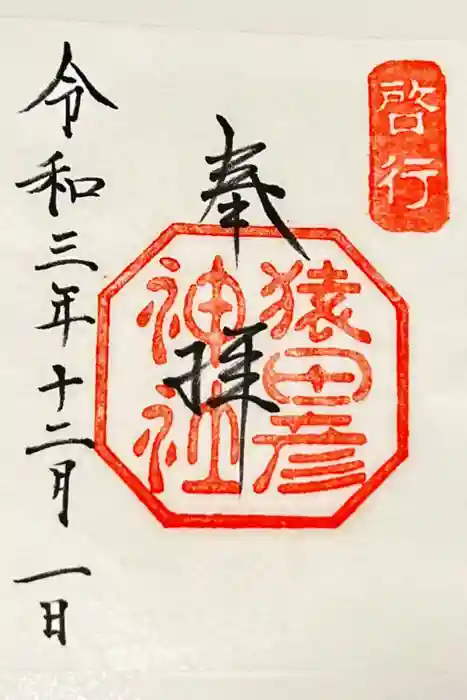 啓行
猿田彦
神社
奉拝
令和三年十二月一日